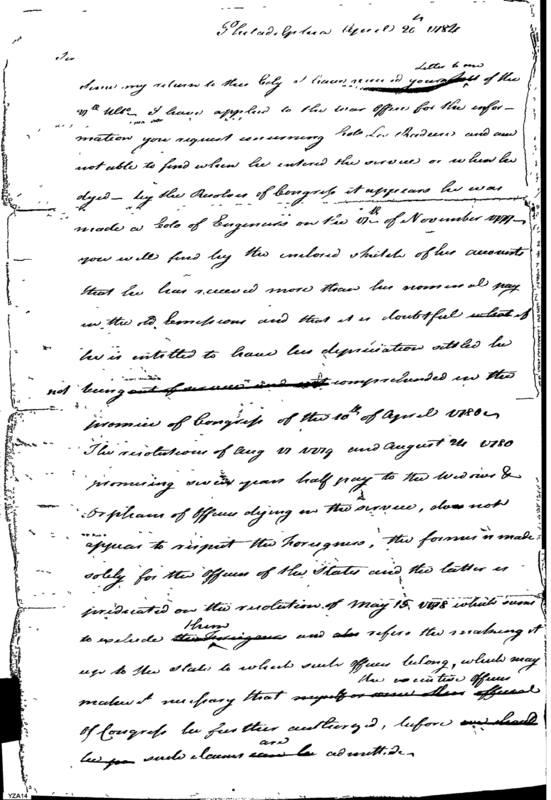 Philadelphia April 26th 1784
Sir
Letter to me
Since my return to this City I have received your of the
17th Ulto. I have applied to the War Office for the infor-
mation you request concerning Colo La Radiere and am
not able to find when he entered the service or when he
dyed — by the Resolves of Congress it appears he was
made a Colo of Engineers on the 17th of November 1777
you will find by the inclosed sketch of his accounts
that he has received more than his nominal pay
in the old Emissions and that it is doubtful
he is intitled to have his depreciation settled he
not being out of service and not comprehended in the
promise of Congress of the 10th of April 1780
The resolutions of Aug 17 1779 and August 24 1780
promising seven years half pay to the Widows &
Orphans of Officers dying in the service, does not
appear to respect the Foreigners, the former is made
solely for the Officers of the States and the latter is
predicated on the resolution of May 15. 1778 which seems
them
to exclude the Foreigners and also refers the making it
up to the State to which such officers belong, which may
the executive officers
make it necessary that
of Congress be further authorized, before
are
be such claims can be admitted.
YZA14